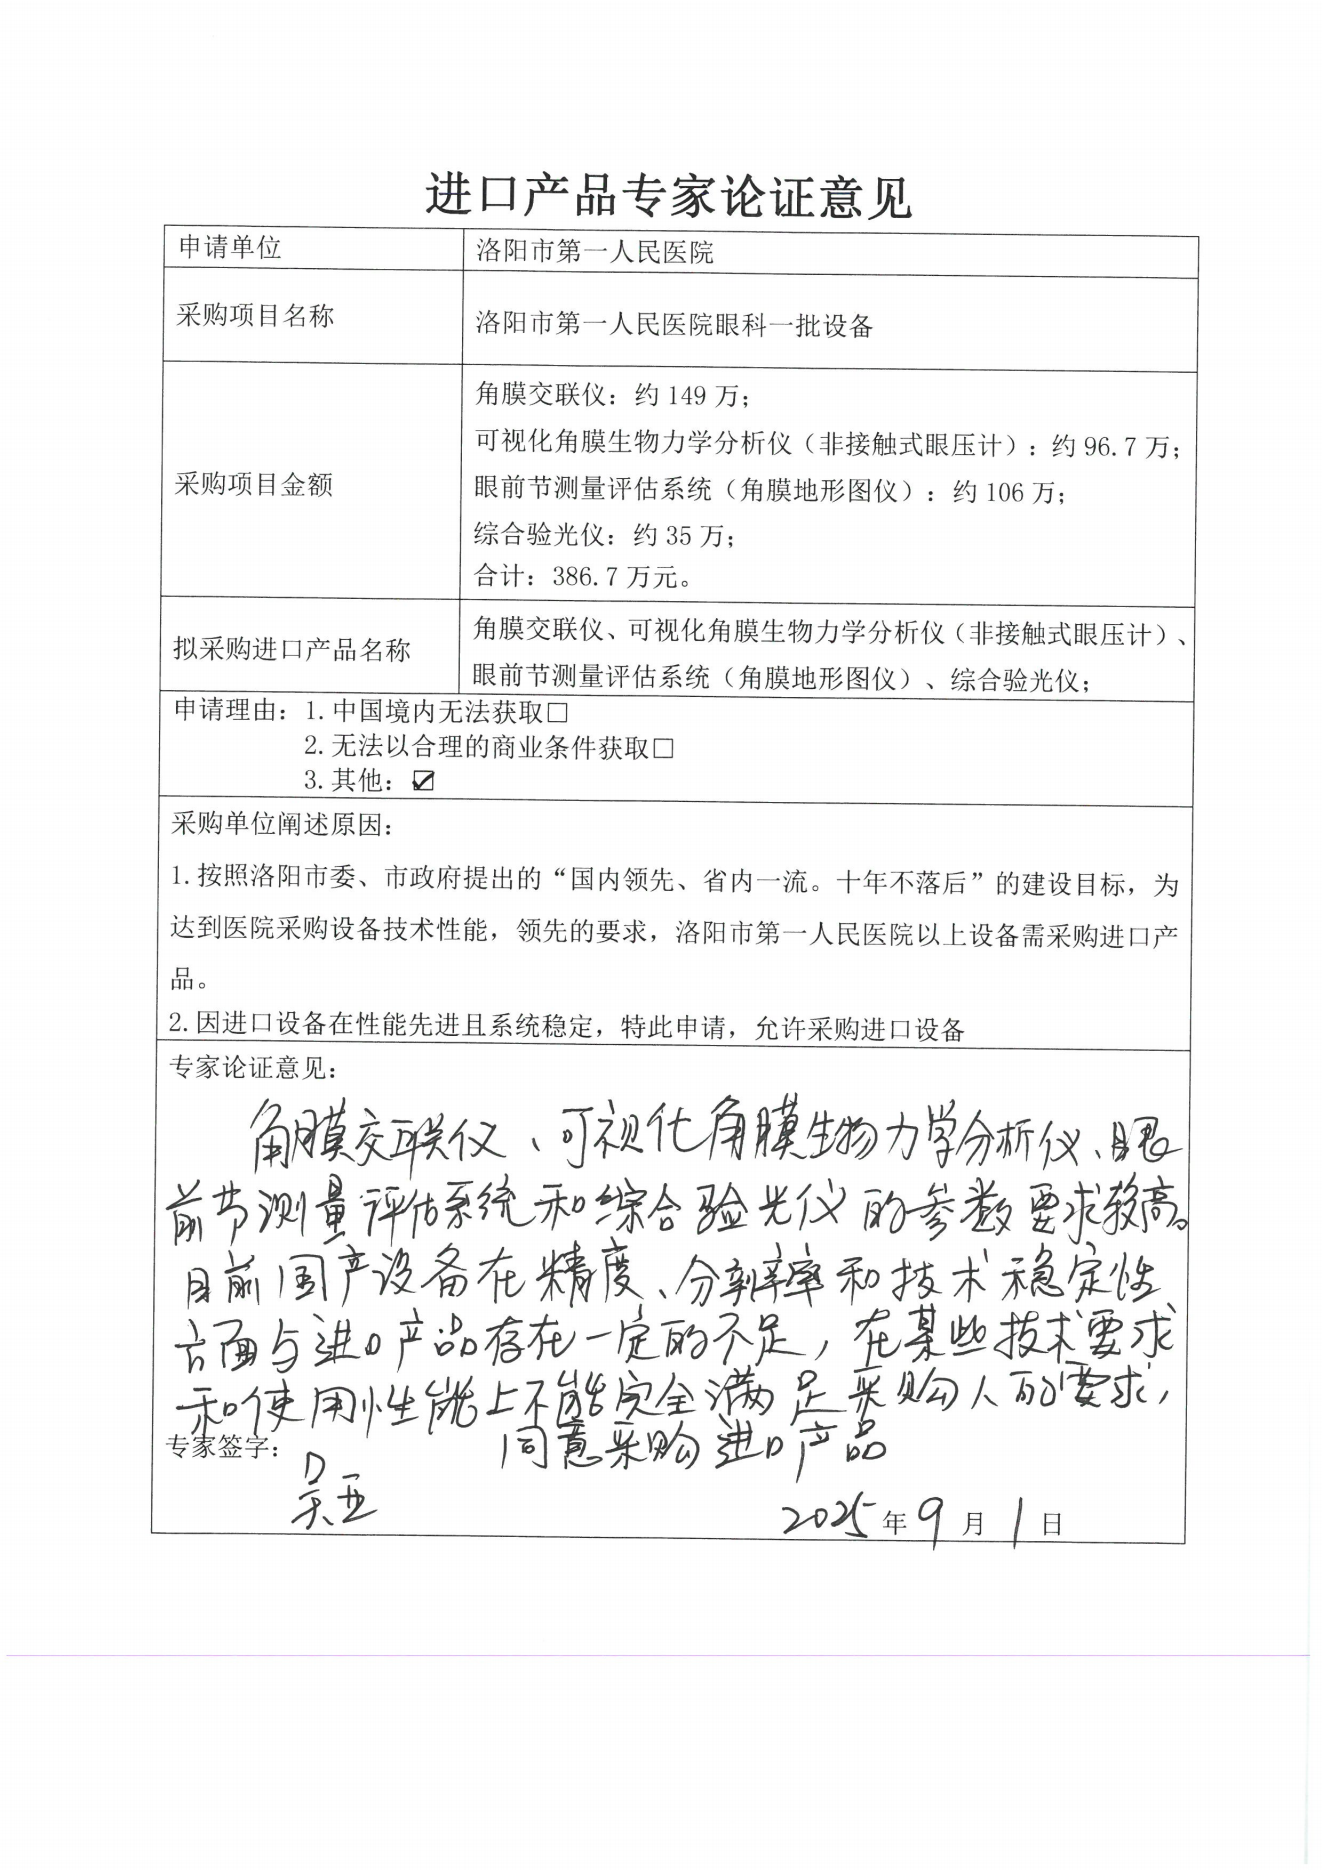 进口产品专家论证意见
申请单位
洛阳市第一人民医院
采购项目名称
洛阳市第一人民医院眼科一批设备
采购项目金额
角膜交联仪：约 149 万；
可视化角膜生物力学分析仪（非接触式眼压计）：约 96.7 万；
眼前节测量评估系统（角膜地形图仪）：约 106 万；
综合验光仪：约 35 万；
合计：386.7 万元。
拟采购进口产品名称
角膜交联仪、可视化角膜生物力学分析仪（非接触式眼压计）、
眼前节测量评估系统（角膜地形图仪）、综合验光仪；
申请理由：1.中国境内无法获取□
2.无法以合理的商业条件获取□
3.其他：☑
采购单位阐述原因：
1.按照洛阳市委、市政府提出的“国内领先、省内一流。十年不落后”的建设目标，为
达到医院采购设备技术性能，领先的要求，洛阳市第一人民医院以上设备需采购进口产
品。
2.因进口设备在性能先进且系统稳定，特此申请，允许采购进口设备
专家论证意见：
角膜交联仪、可视化角膜生物力学分析仪、眼
前节测量评估系统和综合验光仪的参数要求较高。
目前国产设备在精度、分辨率和技术稳定性
方面与进口产品存在一定的不足，在某些技术要求
和使用性能上不能完全满足采购人的要求，
同意采购进口产品
专家签字：
吴亚
2025年9月1日